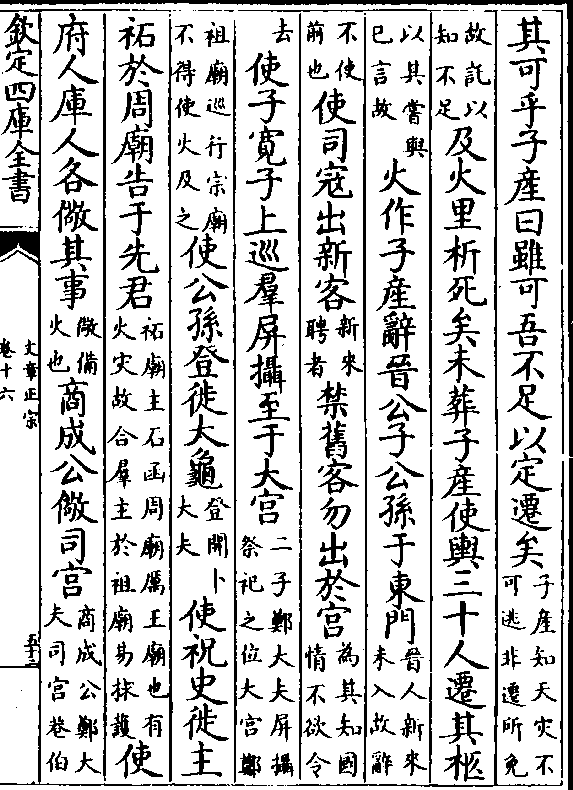 其可乎子產曰雖可吾不足以定遷矣子產知天灾不可逃非遷所免
故託以知不足及火里析死矣未葬子產使輿三十人遷其柩
以其嘗與已言故火作子產辭晉公子公孫于東門晉人新來未入故辭
不使前也使司寇出新客新來聘者禁舊客勿出於宫為其知國情不欲令
去使子寛子上巡羣屏攝至于大宫二子鄭大夫屏攝祭祀之位大宫鄭
祖廟巡行宗廟不得使火及之使公孫登徙大龜登開卜大夫使祝史徙主
祏於周廟告于先君祏廟主石函周廟厲王廟也有火灾故合羣主於祖廟易捄護使
府人庫人各儆其事儆備火也商成公儆司宫商成公鄭大夫司宫巷伯
欽定四庫全書
文章正宗
卷十六